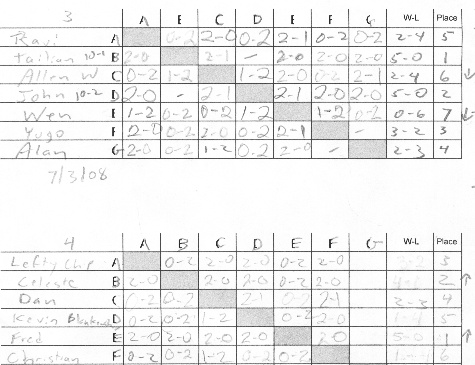 3 A E C D E F G W-L Place
Ravi A 0-2 2-0 0-2 2-1 0-2 0-2 2-4 5
B 2-0 2-1 - 2-0 2-0 2-0 5-0 1
Allen W C 0-2 1-2 1-2 2-0 0-2 2-1 2-4 6 ↓
John 10-2 D 2-0 - 2-1 2-1 2-0 2-0 5-0 2
Wen E 1-2 0-2 0-2 1-2 1-2 0-2 0-6 7 ↓
Yugo F 2-0 0-2 2-0 0-2 2-1 - 3-2 3
Alan G 2-0 0-2 1-2 0-2 2-0 - 2-3 4
7/3/08
4 A B C D E F G W-L Place
Lefty Chip A 0-2 2-0 2-0 0-2 2-0 3
Celeste B 2-0 2-0 2-0 0-2 2-0 2 ↑
Dan C 0-2 0-2 2-1 0-2 2-1 2-3 4
Kevin D 0-2 0-2 1-2 0-2 2-0 5
Fred E 2-0 2-0 2-0 2-0 2-0 5-0 1 ↑
Christian F 0-2 0-2 1-2 0-2 0-2 6